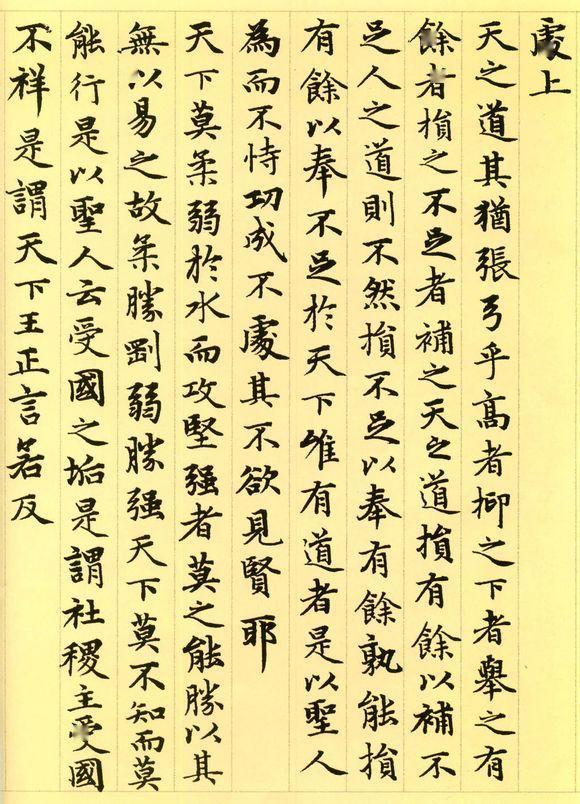 處上
天之道其猶張弓乎高者抑之下者舉之有
餘者損之不足者補之天之道損有餘以補不
足人之道則不然損不足以奉有餘孰能損
有餘以奉不足於天下唯有道者是以聖人
為而不恃功成不處其不欲見賢耶
天下莫柔弱於水而攻堅强者莫之能勝以其
無以易之故柔勝剛弱勝强天下莫不知而莫
能行是以聖人云受國之垢是謂社稷主受國
不祥是謂天下王正言若反